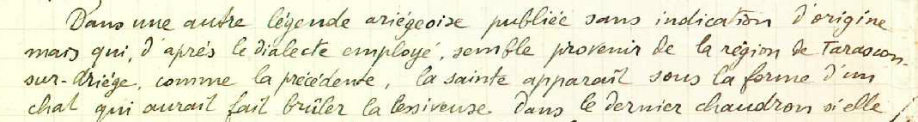 Dans une autre légende ariégeoise publiée sans indication d'origine
mais qui, d'après le dialecte employé, semble provenir de la région de Tarascon-
sur-Ariège, comme la précédente, la sainte apparaît sous la forme d'un
chat qui aurait fait brûler la lessiveuse dans le dernier chaudron si elle